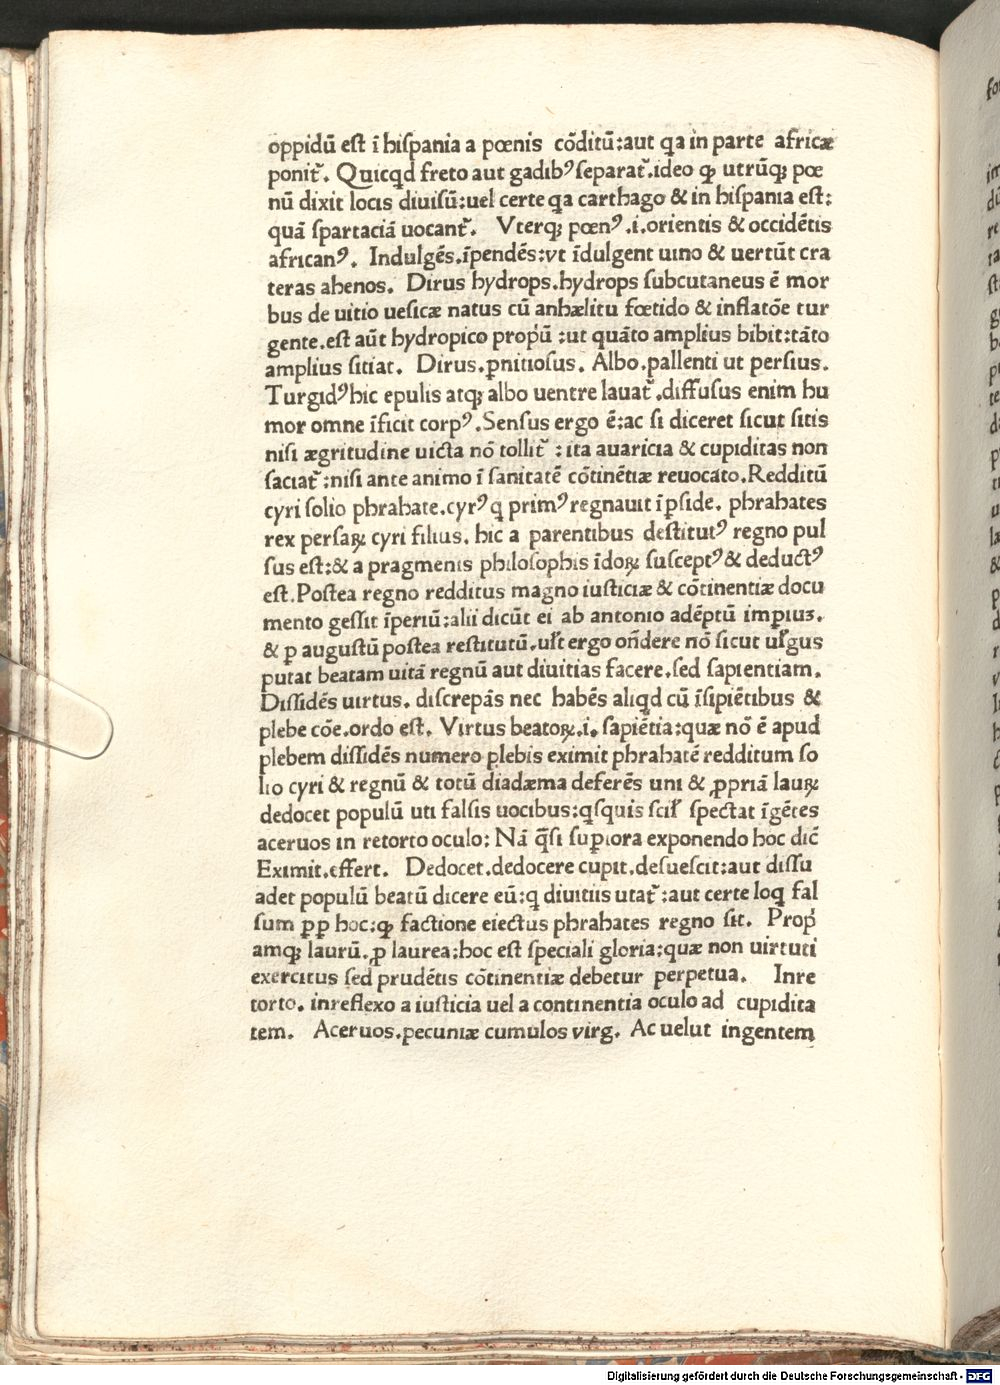 oppidū eſt ī hiſpania a pœnis cōditū:aut qa in parte africæ
ponit᷑. Quicqd freto aut gadibꝰ ſeparat᷑.ideo ꝙ utrūqꝫ pœ
nū dixit locis diuiſū:uel certe qa carthago & in hiſpania eſt:
quā ſpartaciā uocant᷑. Vterqꝫ pœnꝰ.i.orientis & occidētis
africanꝰ. Indulgēs.īpendēs:vt īdulgent uino & uertūt cra
teras ahenos. Dirus hydrops.hydrops ſubcutaneus ē mor
bus de uitio ueſicæ natus cū anhælitu fœtido & inflatōe tur
gente.eſt aūt hydropico propͥū :ut quāto amplius bibit:tāto
amplius ſitiat. Dirus.ꝑnitioſus. Albo.pallenti ut perſius.
Turgidꝰhic epulis atqꝫ albo uentre lauat᷑.diffuſus enim hu
mor omne īficit corpꝰ.Senſus ergo ē:ac ſi diceret ſicut ſitis
niſi ægritudine uicta nō tollit᷑ : ita auaricia & cupiditas non
ſaciat᷑:niſi ante animo ī ſanitatē cōtinētiæ reuocato.Redditū
cyri ſolio phrahate.cyrꝰ q primꝰregnauit īꝑſide. phrahates
rex perſaꝝ cyri filius. hic a parentibus deſtitutꝰ regno pul
ſus eſt:& a pragmenis philoſophis īdoꝝ ſuſceptꝰ& deductꝰ
eſt.Poſtea regno redditus magno iuſticiæ & cōtinentiæ docu
mento geſſit īperiū:alii dicūt ei ab antonio adēptū imꝑiuꝫ.
& ꝑ auguſtū poſtea reſtitutū.ul̵t ergo on̄dere nō ſicut ul̵gus
putat beatam uitā regnū aut diuitias facere.ſed ſapientiam.
Diſſidēs uirtus. diſcrepās nec habēs aliqd cū īſipiētibus &
plebe cōe.ordo eſt. Virtus beatoꝝ.i. ſapiētia:quæ nō ē apud
plebem diſſidēs numero plebis eximit phrahatē redditum ſo
lio cyri & regnū & totū diadæma deferēs uni & ꝓpriā lauꝝ
dedocet populū uti falſis uocibus:qſquis ſcil̵ ſpectat īgētes
aceruos in retorto oculo: Nā q̄ſi ſuꝑiora exponendo hoc dic̄
Eximit.effert. Dedocet.dedocere cupit.deſueſcit:aut diſſu
adet populū beatū dicere eū:q diuitiis utat᷑:aut certe loq fal
ſum ꝓꝑ hoc:ꝙ factione eiectus phrahates regno ſit. Propͥ
amqꝫ laurū.ꝓ laurea:hoc eſt ſpeciali gloria:quæ non uirtuti
exercitus ſed prudētis cōtinentiæ debetur perpetua. Inre
torto. inreflexo a iuſticia uel a continentia oculo ad cupidita
tem. Aceruos.pecuniæ cumulos virg. Ac uelut ingentem
Digitalisierung gefördert durch die Deutsche Forschungsgemeinschaft - DFG